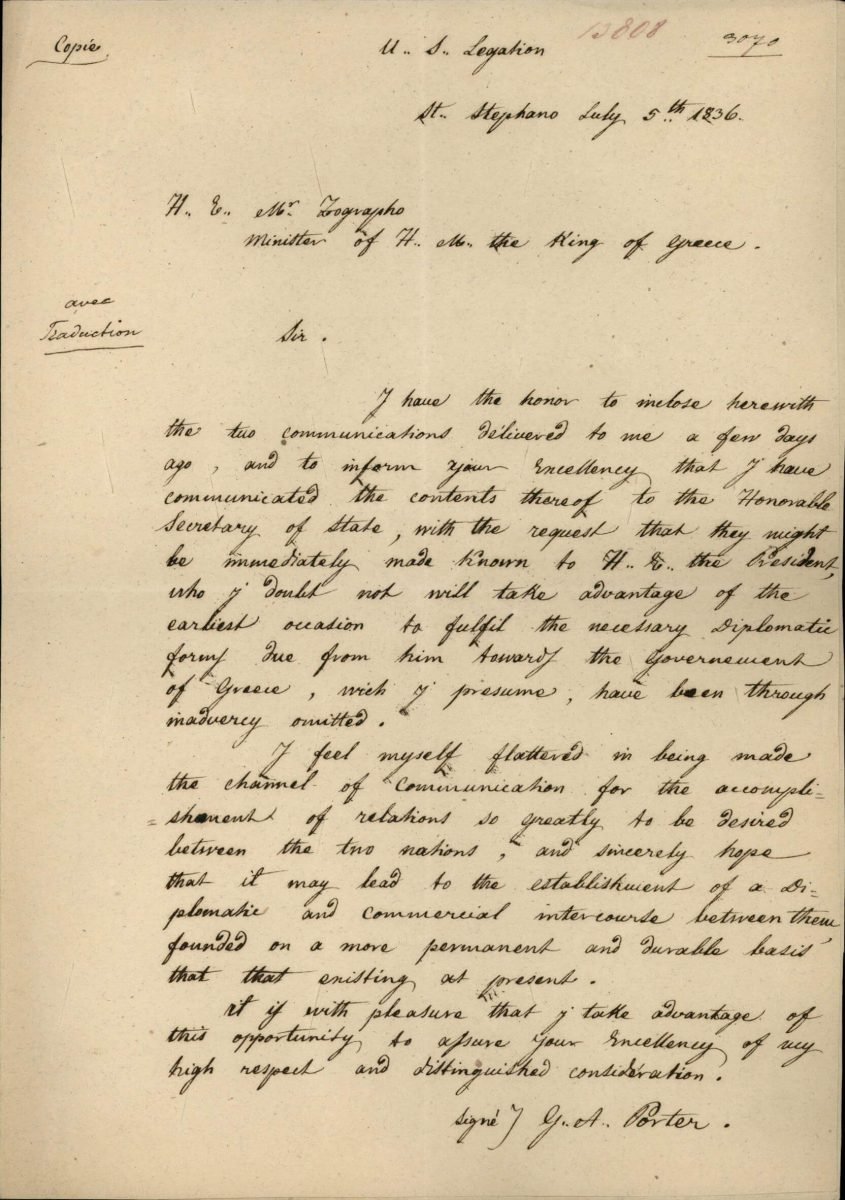 Copie
13808
3070
U.. S.. Legation
St.. Stephano July 5..th 1836.
H.. E.. Mr Zographo
Minister of H.. M.. the King of Greece.
avec
Traduction
Sir.
I have the honor to inclose herewith
the two communications delivered to me a few days
ago, and to inform your Encellency that I have
communicated the contents thereof to the Honorable
Secretary of State, with the request that they might
be immediately made known to H.. E.. the President,
who j doubt not will take advantage of the
earliest occasion to fulfil the necessary Diplomatic
forms due from him towards the Governement
of Greece, wich j presume, have been through
inadvercy omitted.
I feel myself flattered in being made
the channel of communication for the accompli=
=shement of relations so greatly to be desired
between the two nations, and sincerely hope
that it may lead to the establishment of a Di=
plomatic and commercial intercourse between them
founded on a more permanent and durable basis
that that existing at present.
it is with pleasure that j take advantage of
this opportunity to assure your Encellency of my
high respect and distinguished consideration.
signé) G.. A.. Porter.